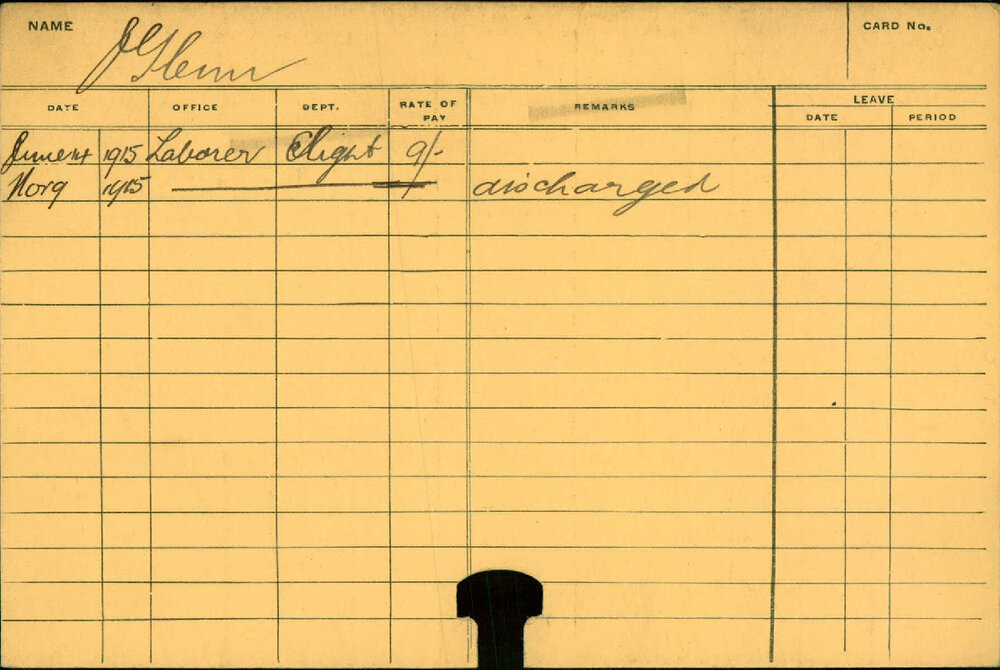 NAME J Glenn CARD No.
DATE OFFICE DEPT. RATE OF PAY REMARKS LEAVE
DATE PERIOD
June 14 1915 Laborer Elight 9/-
Nov 9 1915 discharged